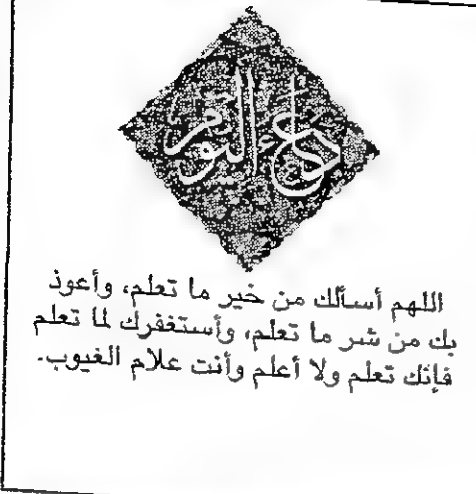 دعاء اليوم
اللهم أسألك من خير ما تعلم، وأعوذ
بك من شر ما تعلم، وأستغفرك لما تعلم
فإنك تعلم ولا أعلم وأنت علام الغيوب.